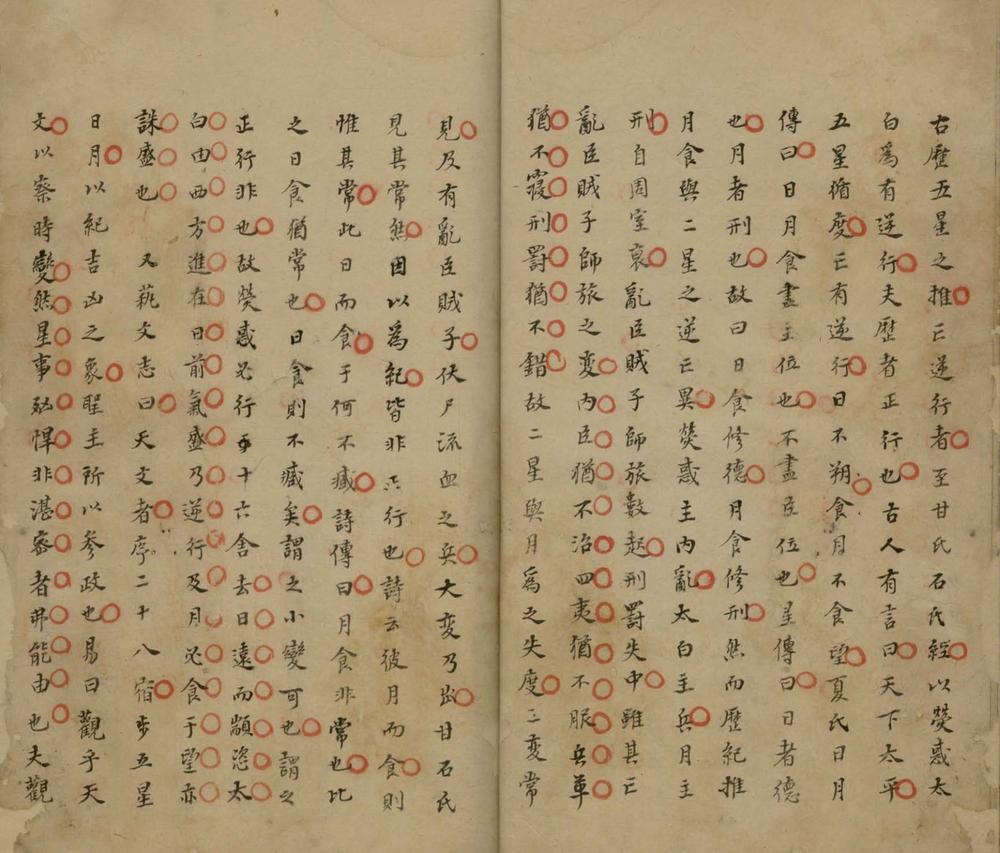 古歷五星之推亡逆行者至甘氏石氏經以熒惑太
白爲有逆行夫歷者正行也古人有言曰天下太平
五星循度亡有逆行日不朔食月不食望夏氏日月
傳曰日月食盡主位也不盡臣位也星傳曰日者德
也月者刑也故曰日食修德月食修刑然而歷紀推
月食與二星之逆亡異熒惑主內亂太白主兵月主
刑自周室衰亂臣賊子師旅數起刑罰失中雖其亡
亂臣賊子師旅之變內臣猶不治四夷猶不服兵革
猶不寢刑罰猶不錯故二星與月爲之失度三變常
見及有亂臣賊子伏尸流血之兵大變乃出甘石氏
見其常然因以爲紀皆非正行也詩云彼月而食則
惟其常此日而食于何不臧詩傳曰月食非常也比
之日食猶常也日食則不臧矣謂之小變可也謂之
正行非也故熒惑必行十六舍去日遠而顓恣太
白由西方進在日前氣盛乃逆行及月必食于望亦
誅盛也　又藝文志曰天文者序二十八宿步五星
日月以紀吉凶之象聖主所以參政也易曰觀乎天
文以察時變然星事㓙悍非湛密者弗能由也夫觀